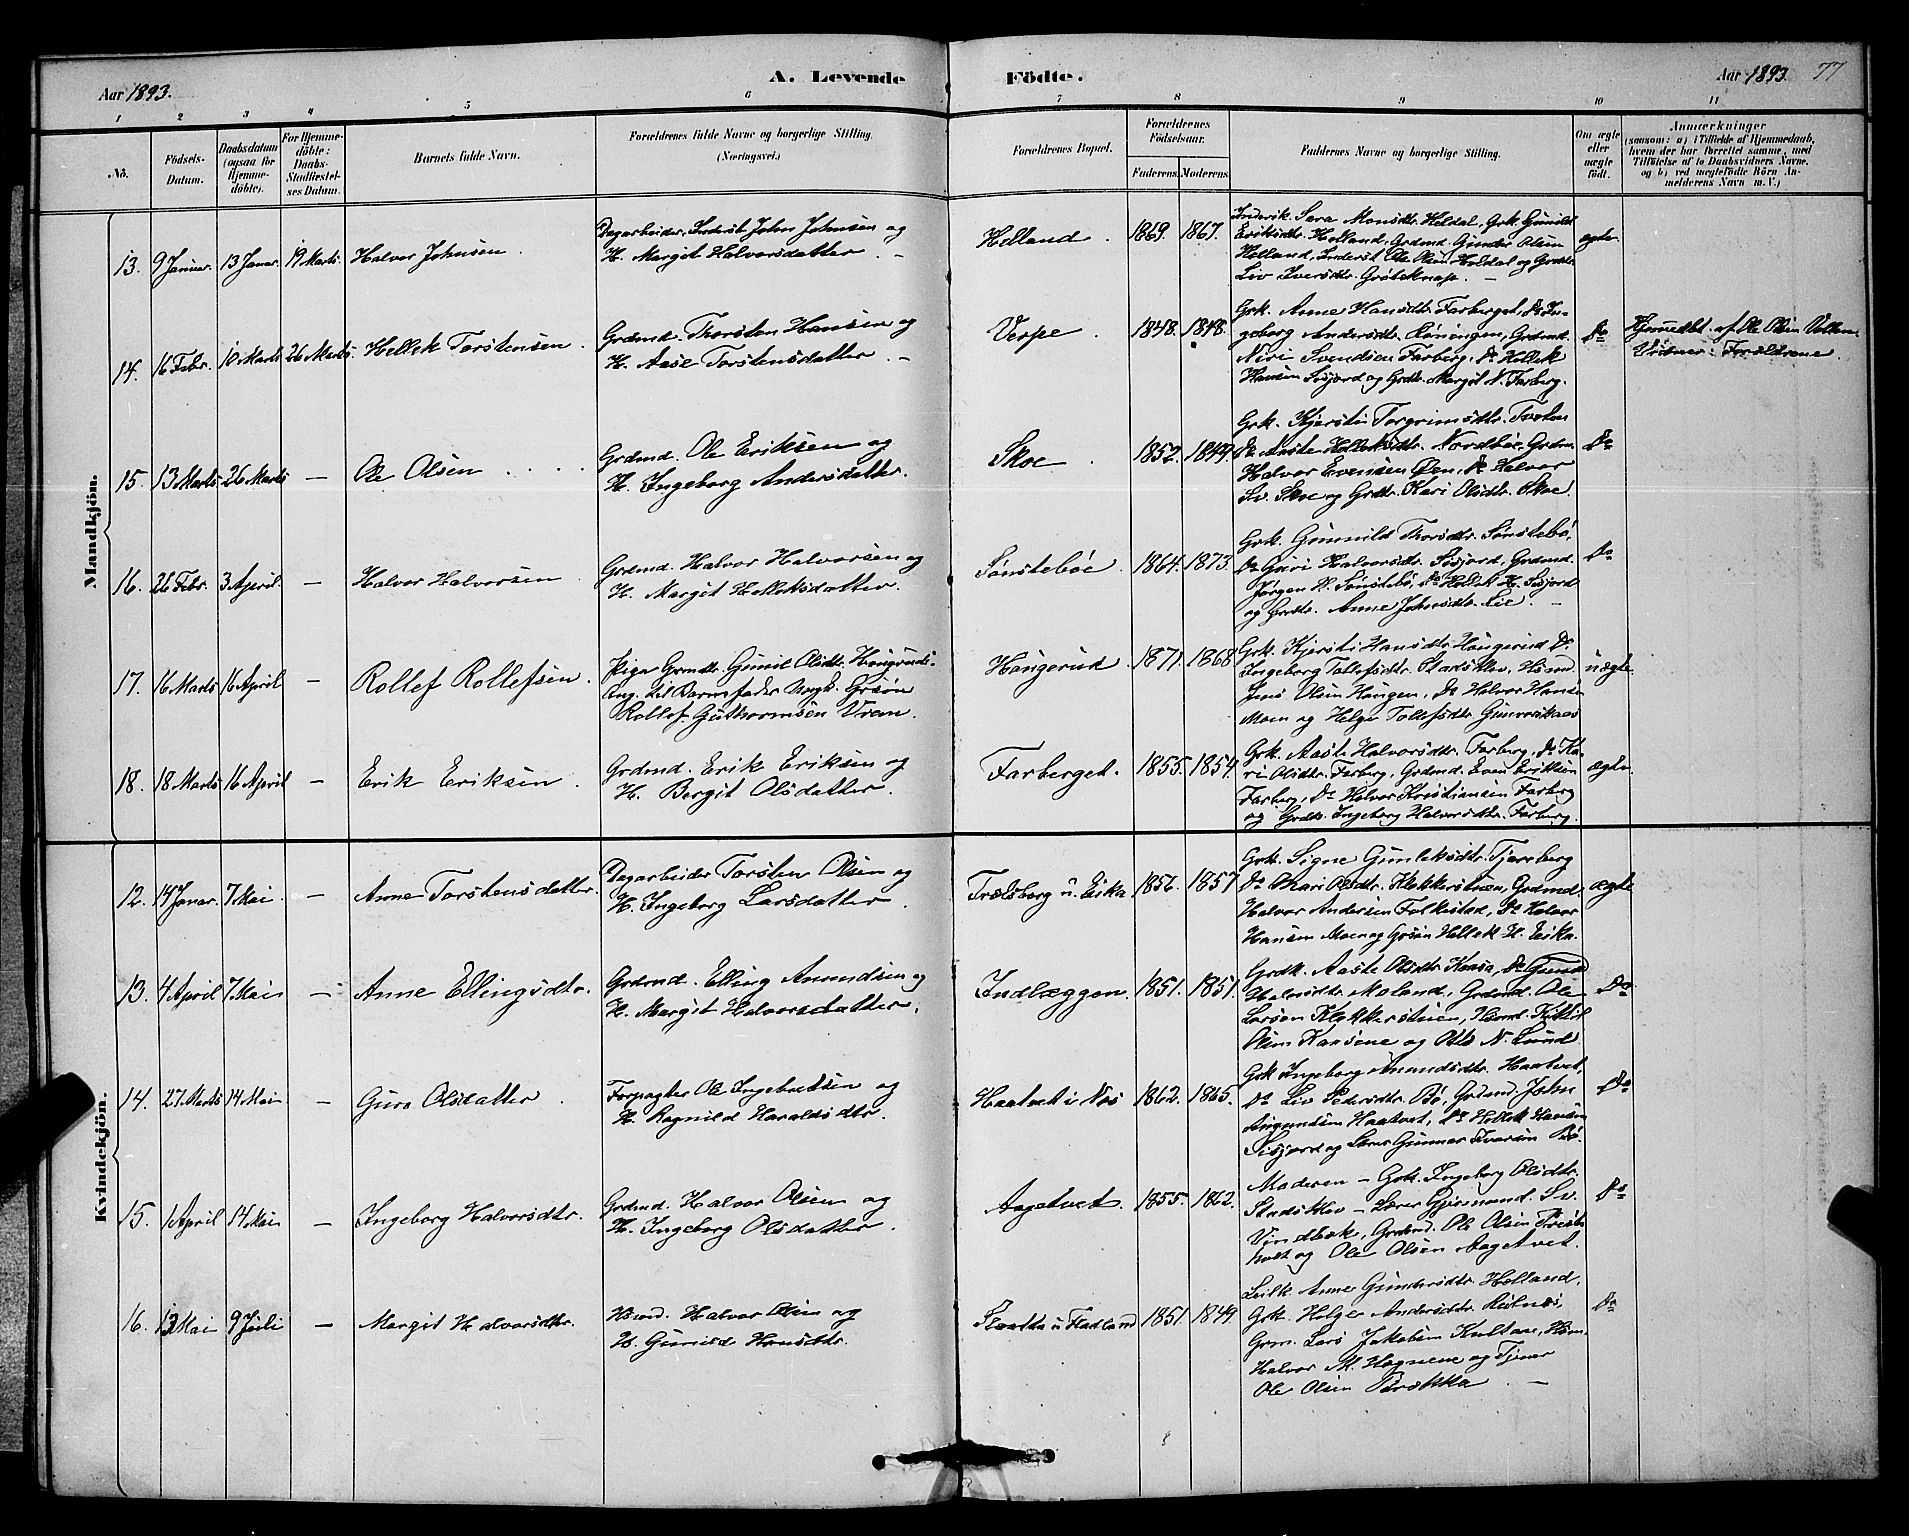 Aar 1893.
A. Levende Födte.
Aar 1893. 77
1 2 3 4 5 6 7 8 9 10 11
No.
Födsels-Datum.
Daabsdatum (ogsaa for Hjemme-döbte).
For Hjemme-döbte: Daabs-Stadfæstel-ses Datum.
Barnets fulde Navn.
Forældrenes fulde Navne og borgerlige Stilling. (Næringsvei.)
Forældrenes Bopæl.
Forældrenes Födselsaar.
Faderens. Moderens.
Faddernes Navne og borgerlige Stilling.
Om ægte eller uægte födt.
Anmærkninger
(saasom: a) i Tilfælde af Hjemmedaab,
hvem der har forrettet samme, med
Tilföielse af to Daabsvidners Navne,
og b) ved uægtefödte Börn An-
melderens Navn m. V.)
Mandkjön.
13. 9 Januar. 13 Januar. 19 Marts. Halvor Johnsen
Dagarbeider, Inderst John Johnsen og
H. Margit Halvorsdatter. –
Helland. 1869. 1867.
Inderik. Sara Monsdtr. Heldal, Grk. Gunild
Eriksdtr. Helland, Grdmd. Gunder Olsen
Helland, Inderst Ole Olsen Heldal og Grdtr.
Liv Iversdtr. Gröteknap. –
ægte
14. 16 Febr. 10 Marts 26 Marts. Hellek Torstensen.
Grdmd. Thorsten Hansen og
H. Aase Torstensdatter. –
Verpe. 1848. 1848.
Grk. Anne Hansdtr. Farberget, Do In-
geborg Andersdtr. Röningen, Grdmd.
Niri Svendsen Farberg, Do Hellek
Hansen Sisjord og Grdtr. Margit N. Farberg.
Do
Hjemedbt. af Ole Olsen
Vidner: Forældrene.
15. 13 Marts 26 Marts – Ole Olsen . . . .
Grdmd. Ole Eriksen og
H. Ingeborg Andersdatter.
Skoe. 1852. 1849.
Grk. Kjersti Torgrimsdtr. Tveten
Do Aaste Helleksdtr. Nordböe, Grdm.
Halvor Evensen Öen, Do Halvor
Sv. Skoe og Grdtr. Kari Olsdtr. Skoe.
Do
16. 26 Febr. 3 April. – Halvor Halvorsen.
Grdmd. Halvor Halvorsen og
H. Margit Helleksdatter.
Sönsteböe. 1864. 1873.
Grk. Gunnild Thorsdtr. Sönstebö,
Do Guri Halvorsdtr. Sisjord, Grdmd.
Jörgen H. Sönstebö, Do Hellek H. Sisjord
og Grdtr. Anne Johnsdtr. Lie. –
Do
17. 16 Marts 16 April – Rollef Rollefsen.
Pige Grmdtr. Gunil Olsdtr. Haugerud.
Ang. til Barnefader Ungk. Grsön
Rollef Guthormsen Vrem.
Haugerud. 1871. 1868.
Grk. Kjersti Hansdtr. Haugerud Do
Ingeborg Tollefsdtr. Stadsklev, Hsmd.
Jens Olsen Haugen, Do Halvor Hansen
Moen og Helge Tollefsdtr. Gunneriksaas
uægte.
18. 18 Marts 16 April – Erik Eriksen.
Grdmd. Erik Eriksen og
H. Bergit Olsdatter.
Farberget. 1855. 1854.
Grk. Aaste Halvorsdtr. Farberg, Do Ka-
ri Olsdtr. Farberg, Grdmd. Even Eriksen
Farberg, Do Halvor Kristiansen Farberg
og Grdtr. Ingeborg Halvorsdtr. Farberg.
ægte.
Kvindekjön.
12. 14 Januar. 7 Mai. – Anne Torstensdatter.
Dagarbeider Torsten Olsen og
H. Ingeborg Larsdatter.
Trælsberg u. Eika. 1856. 1857
Grk. Signe Gunleksdtr. Tjereberg
Do Mari Olsdtr. Klekkerstuen, Grdmd.
Halvor Andersen Folkestad, Do Halvor
Hansen Moen og Grsön Hellek H. Eika.
ægte
13. 4 April 7 Mai – Anne Ellingsdtr.
Grdmd. Elling Amundsen og
H. Margit Halvorsdatter.
Indlæggen. 1851. 1851.
Grdk. Aaste Olsdtr. Kaasa, Do Gunild
Halvorsdtr. Moland, Grdmd. Ole
Larsen Klekkerstuen, Hsmd. Kittil
Olsen Kaasene og Ole N. Lund
Do
14. 27 Marts 14 Mai – Guro Olsdatter.
Forpagter Ole Ingebretsen og
H. Ragnild Haraldsdtr.
Haatvet i Næs 1862. 1865.
Grk. Ingeborg Amundsdtr. Haatvet,
Do Liv Pedersdtr. Bö, Grdmd. John
Amundsen Haatvet, Do Hellek Hansen
Sisjord og Lærer Gunnar Ivarsen Bö.
Do
15. 1 April 14 Mai – Ingeborg Halvorsdtr.
Grdmd. Halvor Olsen og
H. Ingeborg Olsdatter.
Aagetvet. 1855. 1862.
Moderen – Grk. Ingeborg Olsdtr.
Stadsklev – Lærer Gjermund Sv.
Vindbæk, Grdmd. Ole Olsen Prest-
holt og Ole Olsen Aagetvet.
Do
16. 13 Mai 9 Juli – Margit Halvorsdtr.
Hsmd. Halvor Olsen og
H. Gunild Hansdtr.
Slaatta u. Fladland 1851 1849
Leilk. Anne Gundersdtr. Helland,
Grk. Helge Andersdtr.
Grm. Lars Jakobsen Kultaae, Hsm.
Halvor M. Hagnene og Tjener
Ole Olsen –
Do